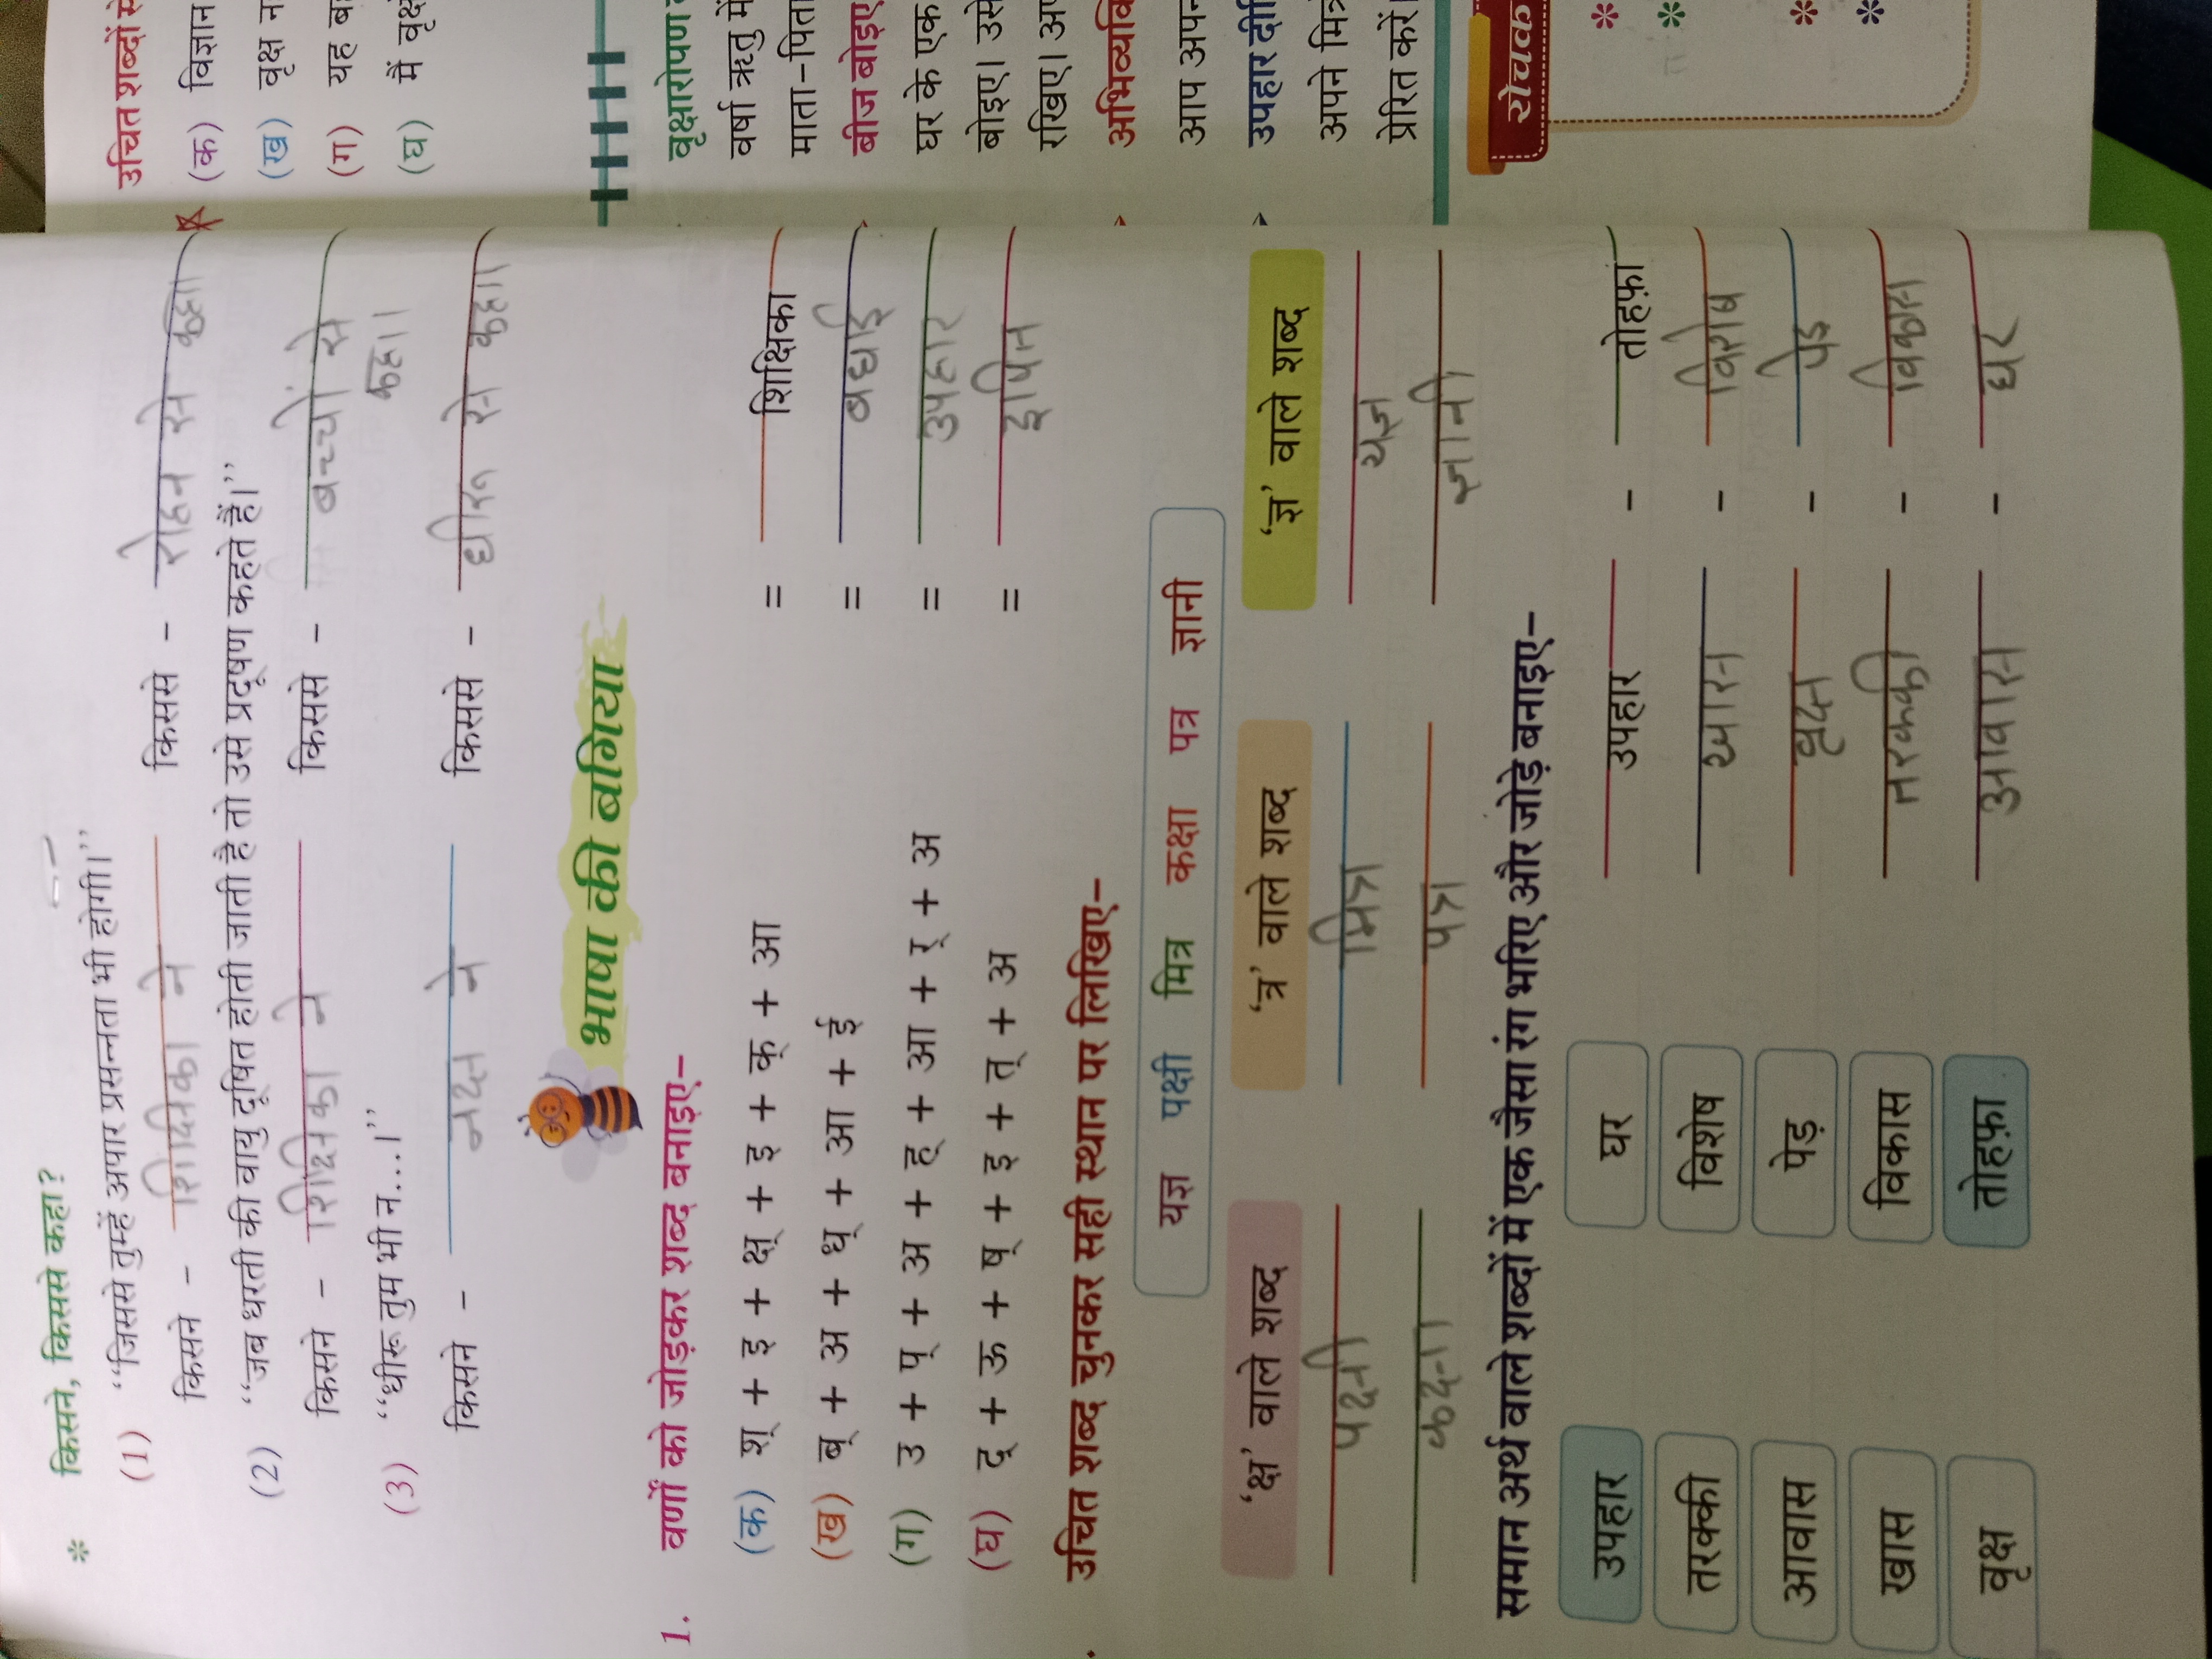 * किसने, किससे कहा?
(1) “जिससे तुम्हें अपार प्रसन्नता भी होगी।”
किसने - शिक्षिका ने किससे - रोहन से कहा।
(2) “जब धरती की वायु दूषित होती जाती है तो उसे प्रदूषण कहते हैं।”
किसने - शिक्षिका ने किससे - बच्चों से
कहा।
(3) “धीरू तुम भी न...!”
किसने - नक्ष ने किससे - धीरू से कहा।
भाषा की बगिया
1. वर्णों को जोड़कर शब्द बनाइए–
(क) श् + इ + क्ष् + इ + क् + आ = शिक्षिका
(ख) ब् + अ + ध् + आ + ई = बधाई
(ग) उ + प् + अ + ह् + आ + र् + अ = उपहार
(घ) द् + ऊ + ष् + इ + त् + अ =
उचित शब्द चुनकर सही स्थान पर लिखिए–
यज्ञ पक्षी मित्र कक्षा पत्र ज्ञानी
‘क्ष’ वाले शब्द ‘त्र’ वाले शब्द ‘ज्ञ’ वाले शब्द
पक्षी मित्र यज्ञ
कक्षा पत्र ज्ञानी
समान अर्थ वाले शब्दों में एक जैसा रंग भरिए और जोड़े बनाइए–
उपहार घर उपहार - तोहफ़ा
तरक्की विशेष खास - विशेष
आवास पेड़ वृक्ष - पेड़
खास विकास तरक्की - विकास
वृक्ष तोहफ़ा आवास - घर
उचित शब्दों से
(क) विज्ञान
(ख) वृक्ष
(ग) यह
(घ) मैं
वृक्षारोपण
वर्षा ऋतु में
माता-पिता
बीज बोइए
घर के एक
बोइए। उसे
रखिए।
आप
अपने
प्रेरित करें।
रोचक